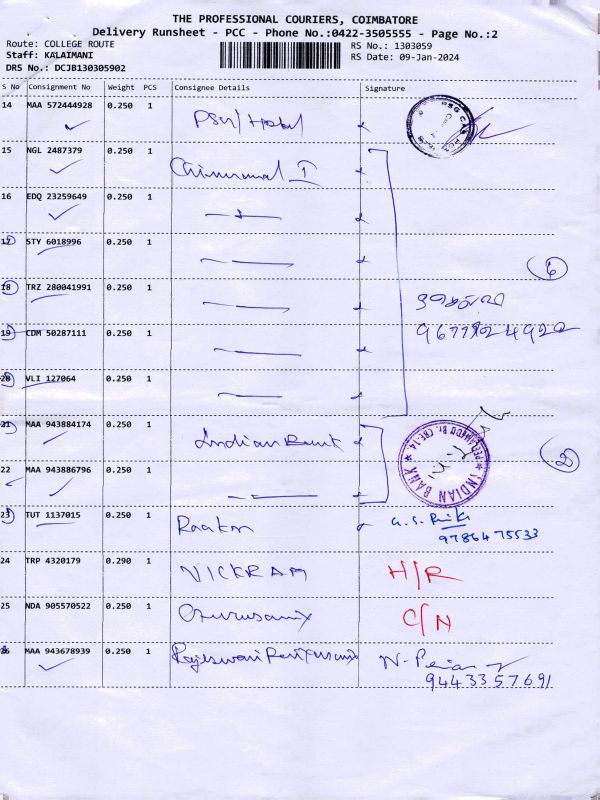 THE PROFESSIONAL COURIERS, COIMBATORE
Delivery Runsheet - PCC - Phone No.:0422-3505555 - Page No.:2
Route: COLLEGE ROUTE
Staff: KALAIMANI
DRS No.: DCJB130305902
RS No.: 1303059
RS Date: 09-Jan-2024
S No Consignment No Weight PCS Consignee Details Signature
14 MAA 572444928 0.250 1
15 NGL 2487379 0.250 1
16 EDQ 23259649 0.250 1
17 STY 6018996 0.250 1
18 TRZ 280041991 0.250 1
19 CDM 50287111 0.250 1
20 VLI 127064 0.250 1
6
21 MAA 943884174 0.250 1 Indian Bank
INDIAN BANK
22 MAA 943886796 0.250 1
2
23 TUT 1137015 0.250 1
9786475533
24 TRP 4320179 0.290 1 VICKRAM H/R
25 NDA 905570522 0.250 1 Gurusamy C/N
26 MAA 943678939 0.250 1 Rajeswari
9443357691